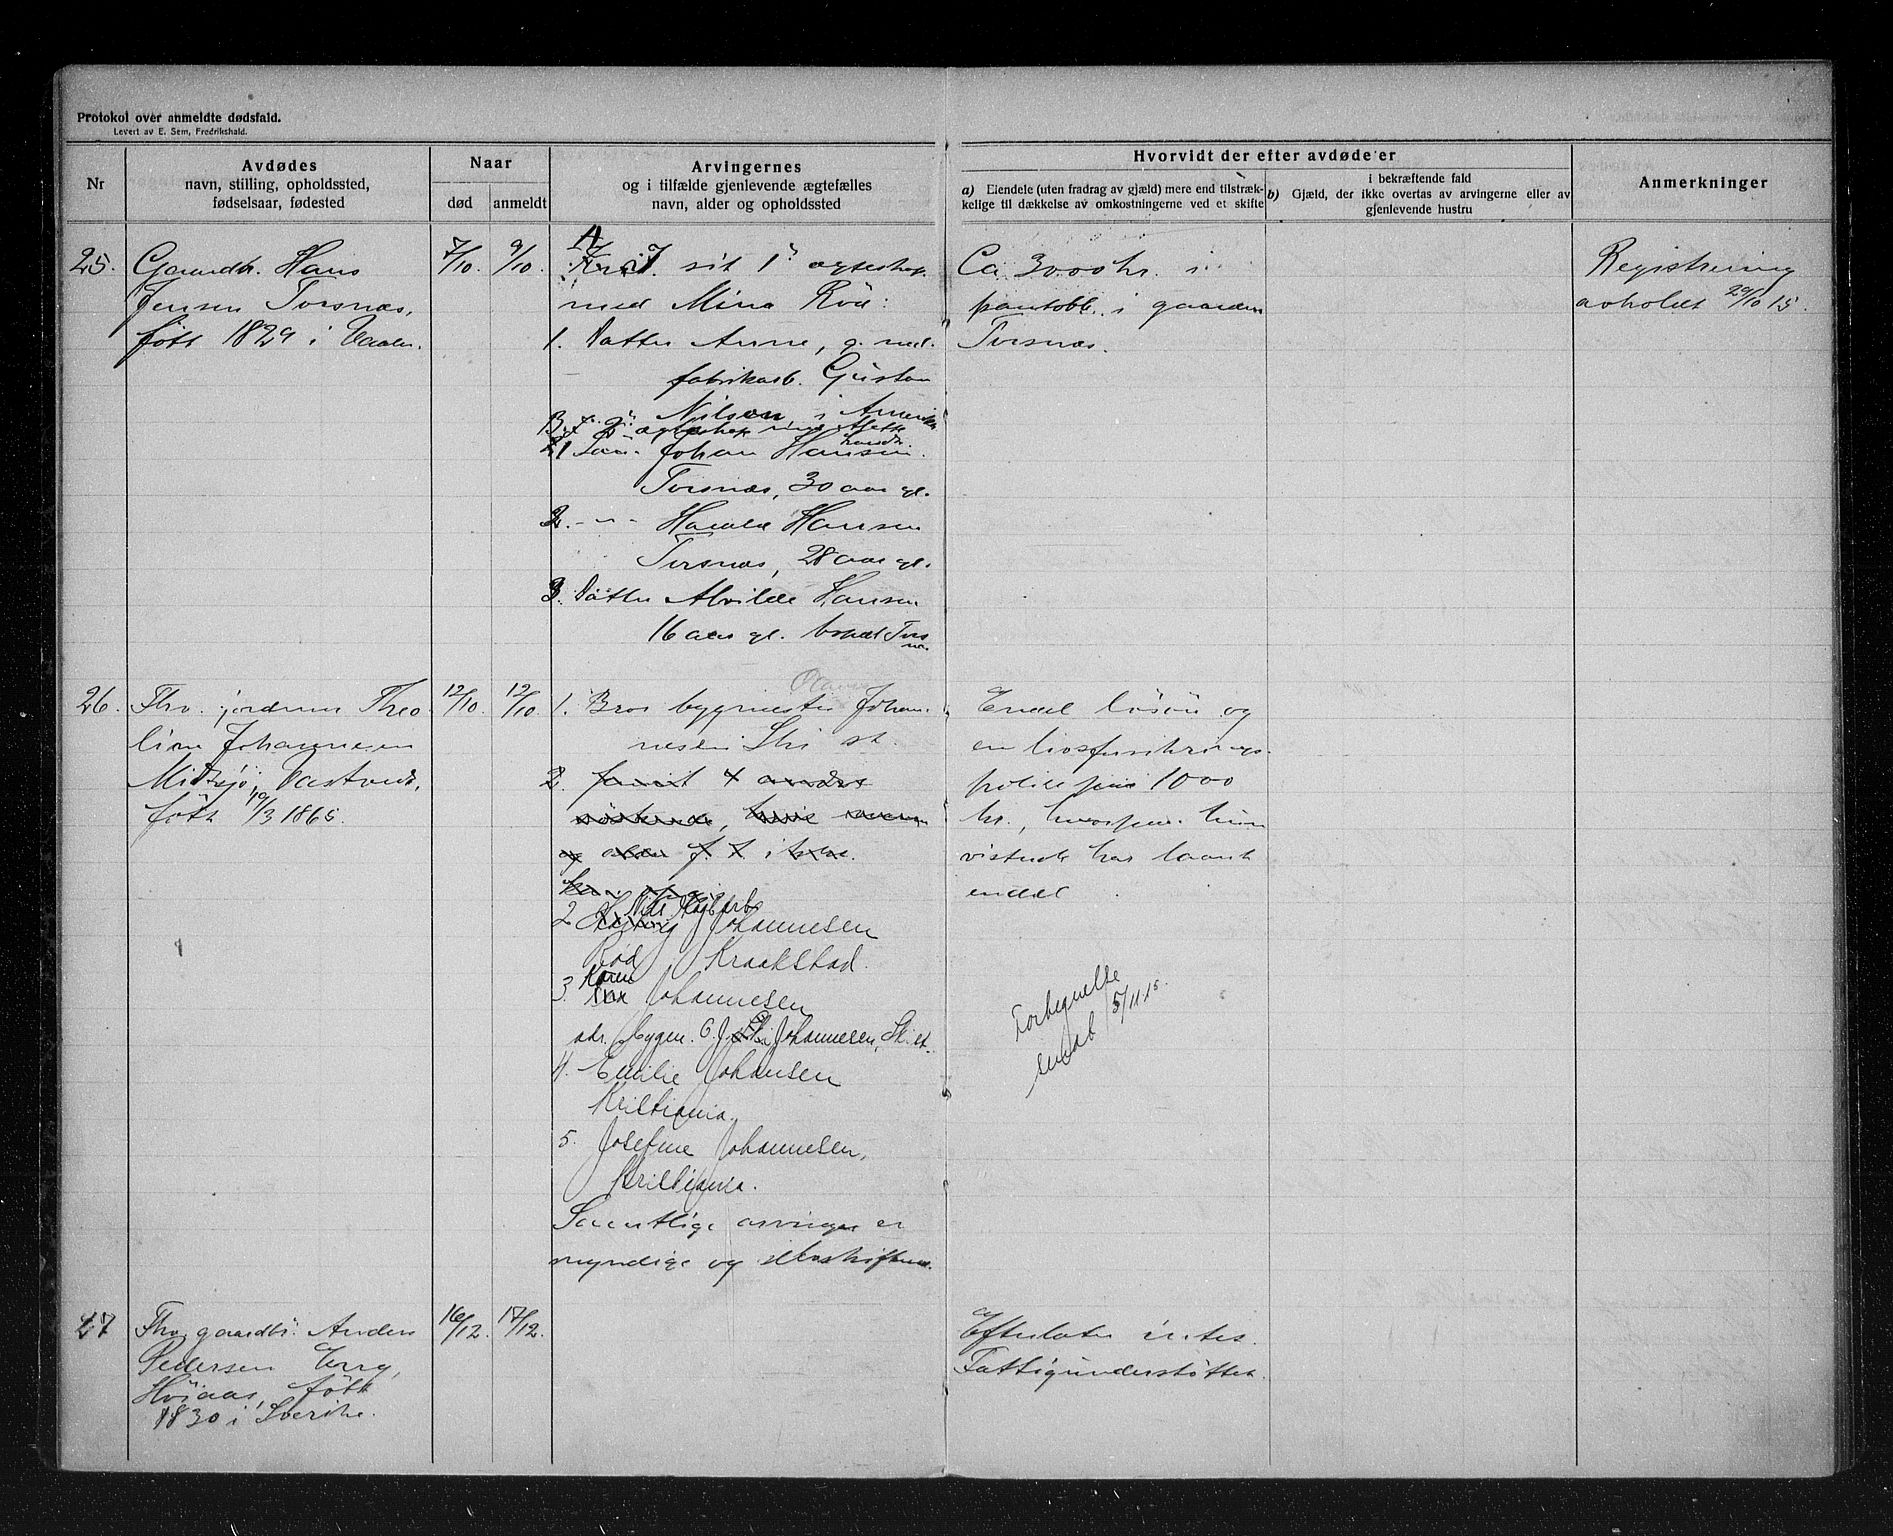 Protokol over anmeldte dødsfald.
Levert av E. Sem, Fredrikshald.
Nr
Avdødes
navn, stilling, opholdssted,
fødselsaar, fødested
Naar
død
anmeldt
Arvingernes
og i tilfælde gjenlevende ægtefælles
navn, alder og opholdssted
Hvorvidt der efter avdøde er
a) Eiendele (uten fradrag av gjæld) mere end tilstræk-
kelige til dækkelse av omkostningerne ved et skifte
i bekræftende fald
b) Gjæld, der ikke overtas av arvingerne eller av
gjenlevende hustru
Anmerkninger
25.
Gaardbr. Hans
Jensen Torsnæs,
født 1829 i Vaaler.
7/10.
9/10.
A
sit 1ste ægteskap
med Mina Röd:
1. Datter Anne, g. med
fabrikarb. Gustav
Nilson i Amerika
B.
ægteskap
1 Søn Johan Hansen
Torsnæs, 30 aar gl.
2. -"- Harald Hansen
Torsnæs, 28 aar gl.
3. Datter Alvilde Hansen
16 aar gl. bopæl Tors
næs
Ca 3000 kr. i
pantobl. i gaarden
Torsnæs.
Registrering
avholdt 29/10 15.
26.
Fhv. jordmor Theo
line Johannesen
Midtsjø, Vastvedt,
født 19/3 1865.
12/10.
12/10.
1. Bror bygmester Johan
nesen Ski st.
2. 4 andre
søskende, hvis navn
og alder f. t. ikke
2 Nils Hagbart
Johannesen
Rød Kraakstad.
3. Karen
Johannesen
adr. bygm. O. Johannesen, Ski st.
4. Emilie Johansen
Kristiania.
5. Josefine Johannesen,
Kristiania.
Samtlige arvinger er
myndige og selvskiftende.
Endel løsøre og
en livsforsikrings-
police paa 1000
kr., hvorpaa hun
vistnok har laant
endel
Forkyndelse
sendt 5/11 15.
27
Fhv. gaardbr. Anders
Pedersen Eng,
Høiaas, født
1830 i Sverike.
16/12.
17/12.
Efterlater intet.
Fattigunderstøttet.